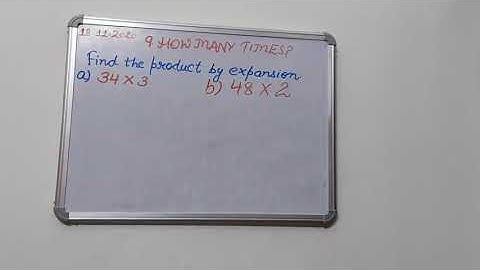 18.11.2020 9 HOW MANY TIMES?
Find the product by expansion
a) 34 x 3 b) 48 x 2